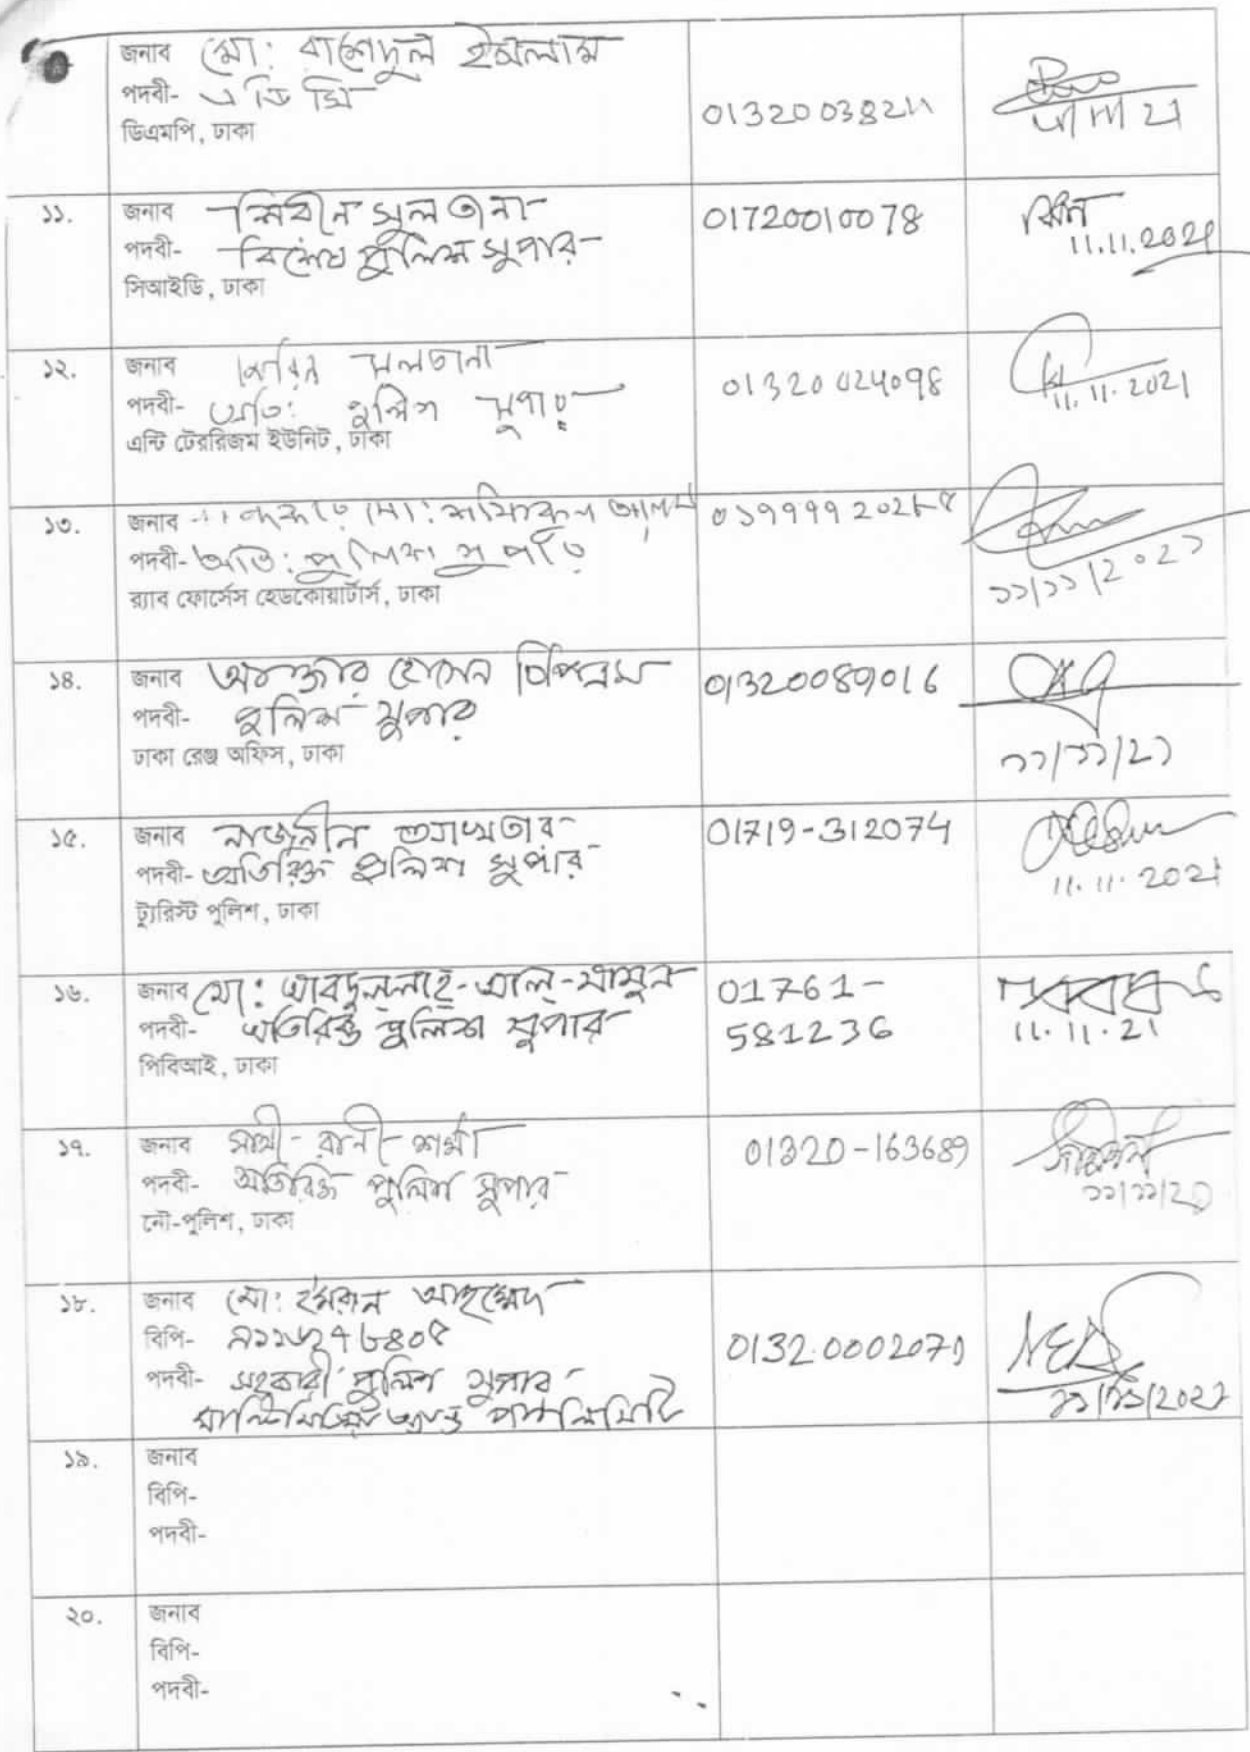 জনাব মোঃ রাশেদুল ইসলাম
পদবী- এডিসি
ডিএমপি, ঢাকা
013200382১১
১১. জনাব শিরীন সুলতানা
পদবী- বিশেষ পুলিশ সুপার
সিআইডি, ঢাকা
01720010078
11.11.2021
১২. জনাব সুলতানা
পদবী- অতিঃ পুলিশ সুপার
এন্টি টেররিজম ইউনিট, ঢাকা
01320024098
11.11.2021
১৩. জনাব মোঃ আলম
পদবী- অতিঃ পুলিশ সুপার
র‌্যাব ফোর্সেস হেডকোয়ার্টার্স, ঢাকা
১১/১১/2০2১
১৪. জনাব হোসেন বিপিএম
পদবী- পুলিশ সুপার
ঢাকা রেঞ্জ অফিস, ঢাকা
01320089016
১১/১১/2১
১৫. জনাব নাজনীন আখতার
পদবী- অতিরিক্ত পুলিশ সুপার
ট্যুরিস্ট পুলিশ, ঢাকা
01719-312074
11.11.2021
১৬. জনাব মো: আবদুল্লাহ্-আল্-মামুন
পদবী- অতিরিক্ত পুলিশ সুপার
পিবিআই, ঢাকা
01761-
581236
11.11.21
১৭. জনাব সাথী রানী শর্মা
পদবী- অতিরিক্ত পুলিশ সুপার
নৌ-পুলিশ, ঢাকা
01320-163689
১১/১১/2১
১৮. জনাব মো: ইমরান আহম্মেদ
বিপি-
পদবী- সহকারী পুলিশ সুপার
এ্যান্ড পাবলিসিটি
১১/১১/202১
১৯. জনাব
বিপি-
পদবী-
২০. জনাব
বিপি-
পদবী-